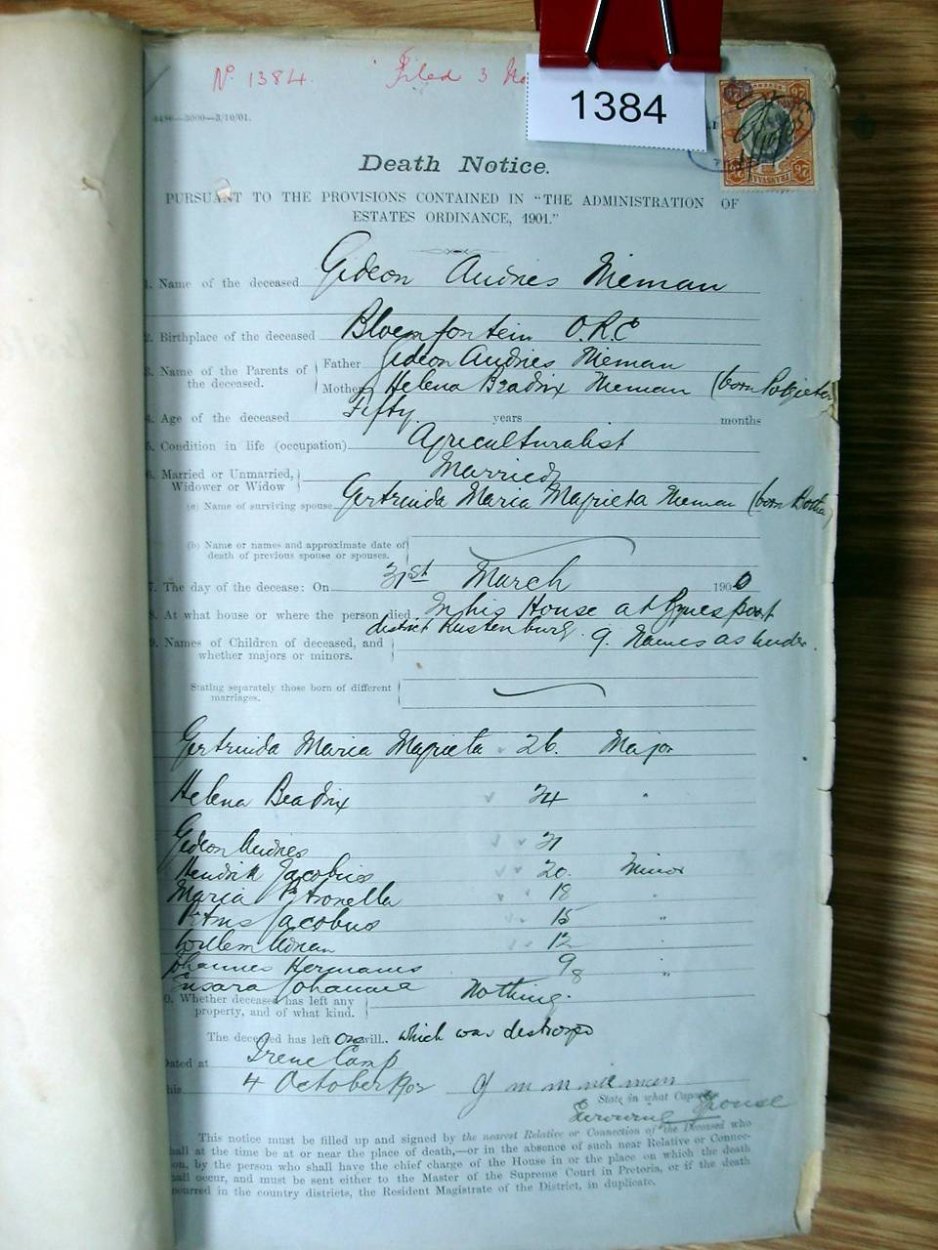 No 1384. Filed 3
1384
3456—3000—3/10/01.
Death Notice.
PURSUANT TO THE PROVISIONS CONTAINED IN "THE ADMINISTRATION OF
ESTATES ORDINANCE, 1901."
1. Name of the deceased Gideon Andries Nieman
2. Birthplace of the deceased Bloemfontein O.R.C
3. Name of the Parents of the deceased. Father Gideon Andries Nieman
Mother Helena Beadrix Nieman (born Potgieter
4. Age of the deceased Fifty years months
5. Condition in life (occupation) Agriculturalist
6. Married or Unmarried, Widower or Widow Married
(a) Name of surviving spouse Gertruida Maria Magrieta Nieman (born Botha)
(b) Name or names and approximate date of
death of previous spouse or spouses.
7. The day of the decease: On 31st March 190
8. At what house or where the person died In his House at
district Rustenburg.
9. Names of Children of deceased, and 9. Names as under.
whether majors or minors.
Stating separately those born of different
marriages.
Gertruida Maria Magrieta 26. Major
Helena Beadrix 24 "
Gideon Andries 21
Hendrik Jacobus 20. Minor
Maria Petronella 18 "
Petrus Jacobus 15 "
Willem Adrian 12 "
Johannes Hermanus 9 "
Susara Johanna 8
10. Whether deceased has left any Nothing.
property, and of what kind.
The deceased has left one will. which was destroyed
Dated at Irene Camp
this 4 October G m m nieman
State in what Capacity
Surviving Spouse
This notice must be filled up and signed by the nearest Relative or Connection of the Deceased who
shall at the time be at or near the place of death,—or in the absence of such near Relative or Connec-
tion, by the person who shall have the chief charge of the House in or the place on which the death
shall occur, and must be sent either to the Master of the Supreme Court in Pretoria, or if the death
occurred in the country districts, the Resident Magistrate of the District, in duplicate.